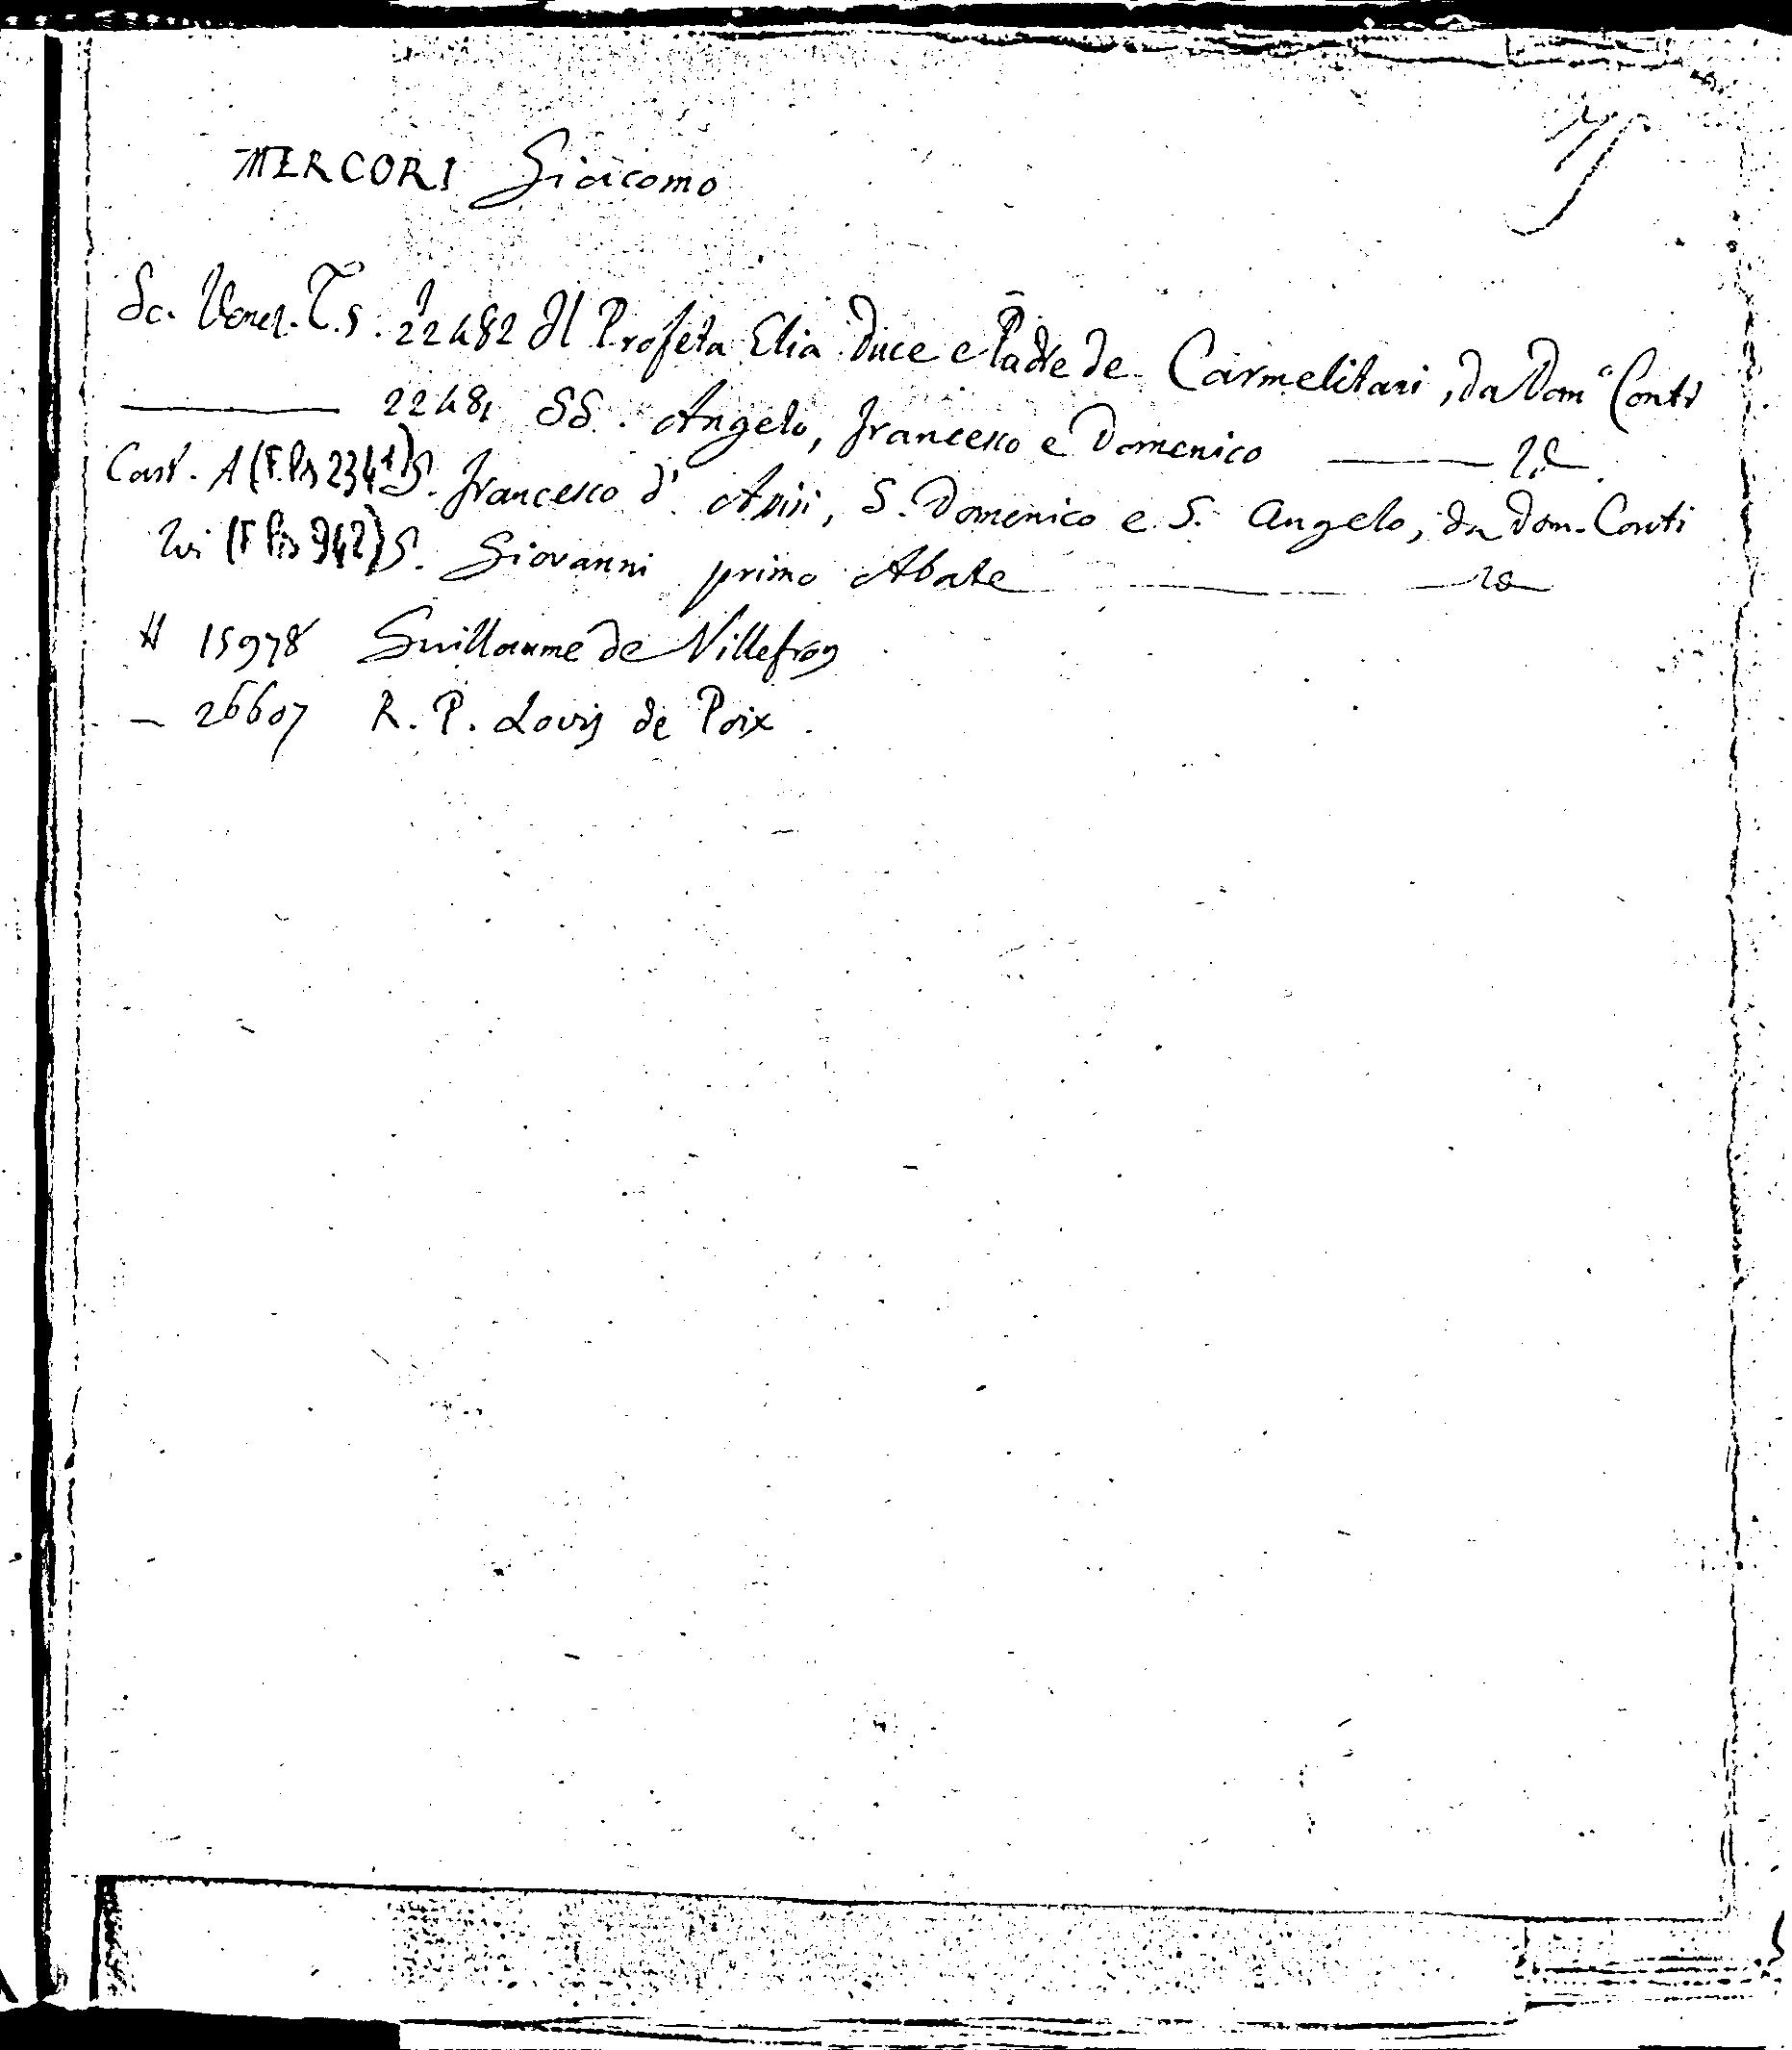 MERCORI Giacomo
Sc. Venez. T.S. 22482 Il Profeta Elia Duce e Padre de Carmelitani, da Dom° Conti
——— 22481 SS. Angelo, Francesco e Domenico ——— id.
Cart. A (F. Pis 2341) S. Francesco d' Assisi, S. Domenico e S. Angelo, da Dom. Conti
Ivi (F Pis 942) S. Giovanni primo Abate ——— id
H 15978 Guillaume de Villefroy
— 26607 R. P. Louis de Poix.